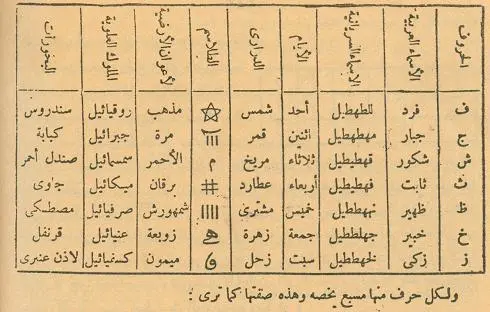 الحروف الأسماء العربية الأسماء السريانية الأيام الدرارى الطلاسم الأعوان الأرضية الملوك العلوية البخورات
ف فرد للطهطيل أحد شمس مذهب روقيائيل سندروس
ج جبار مهطهطيل اثنين قمر مرة جبرائيل كبابة
ش شكور قهطيطيل ثلاثاء مريخ م الأحمر سمسمائيل صندل أحمر
ث ثابت فهطيطيل أربعاء عطارد # برقان ميكائيل جاوى
ظ ظهير نههططيل خميس مشترى |||| شمهورش صرفيائيل مصطكى
خ خبير جهلططيل جمعة زهرة زوبعة عنيائيل قرنفل
ز زكى لخهططيل سبت زحل ميمون كسفيائيل لاذن عنبرى
ولكل حرف منها مسبع يخصه وهذه صفتها كما ترى :